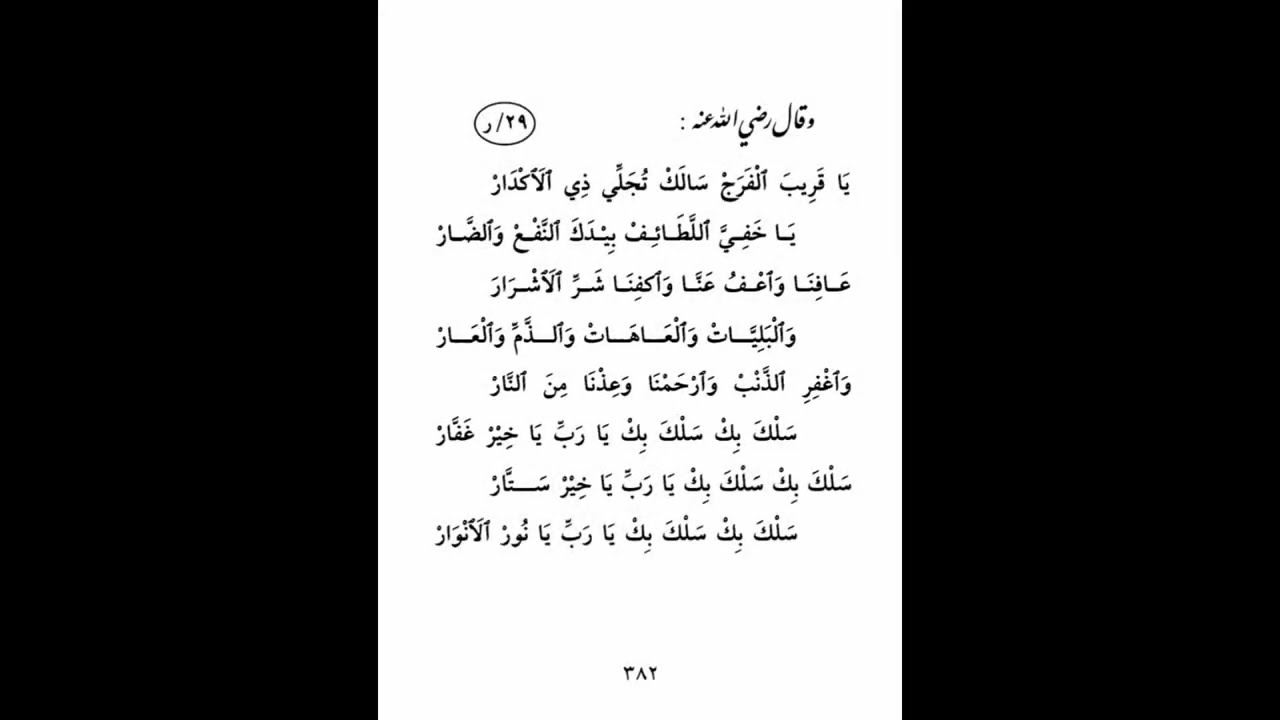 وقال رضي الله عنه : ٢٩/ر
يَا قَرِيبَ ٱلْفَرَجْ سَالَكْ تُجَلِّي ذِي ٱلَأكْدَارْ
يَـا خَفِـيَّ ٱللَّطَـائِـفْ بِيْـدَكَ ٱلنَّفْـعْ وَٱلضَّـارْ
عَـافِنَـا وَٱعْـفُ عَنَّـا وَٱكفِنَـا شَـرِّ ٱلَأشْـرَارَ
وَٱلْبَلِيَّـاتْ وَٱلْعَـاهَـاتْ وَٱلـذَّمِّ وَٱلْعَـارْ
وَٱغْفِرِ ٱلذَّنْبْ وَٱرْحَمْنَا وَعِذْنَا مِنَ ٱلنَّارْ
سَلْكَ بِكْ سَلْكَ بِكْ يَا رَبِّ يَا خِيْرْ غَفَّارْ
سَلْكَ بِكْ سَلْكَ بِكْ يَا رَبِّ يَا خِيْرْ سَـتَّارْ
سَلْكَ بِكْ سَلْكَ بِكْ يَا رَبِّ يَا نُورْ ٱلَأنْوَارْ
٣٨٢